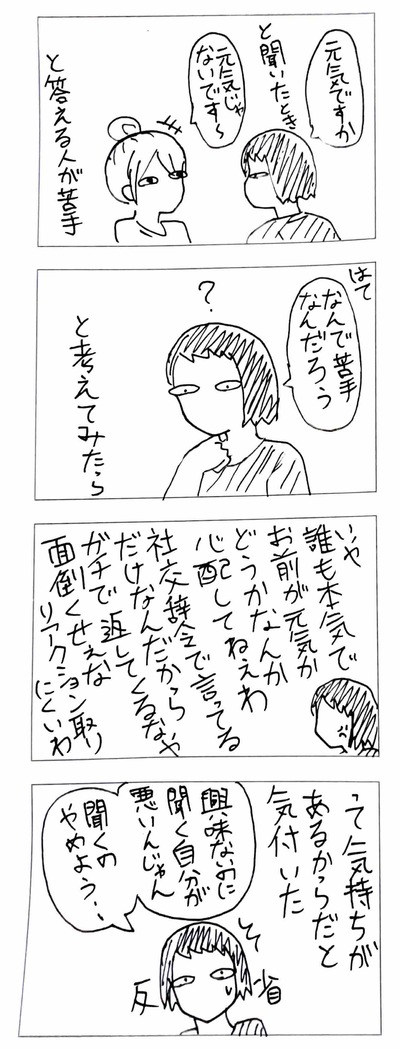 元気ですか
と聞いたとき
元気じゃ
ないです〜
と答える人が苦手
はて
なんで苦手
なんだろう
？
と考えてみたら
いや
誰も本気で
お前が元気か
どうかなんか
心配してねえわ
社交辞令で言ってる
だけなんだからや
ガチで返してくるな
面倒くせえな
リアクション取り
にくいわ
って気持ちが
あるからだと
気付いた
興味ないのに
聞く自分が
悪いんじゃん
聞くの
やめよう、
そ
反省